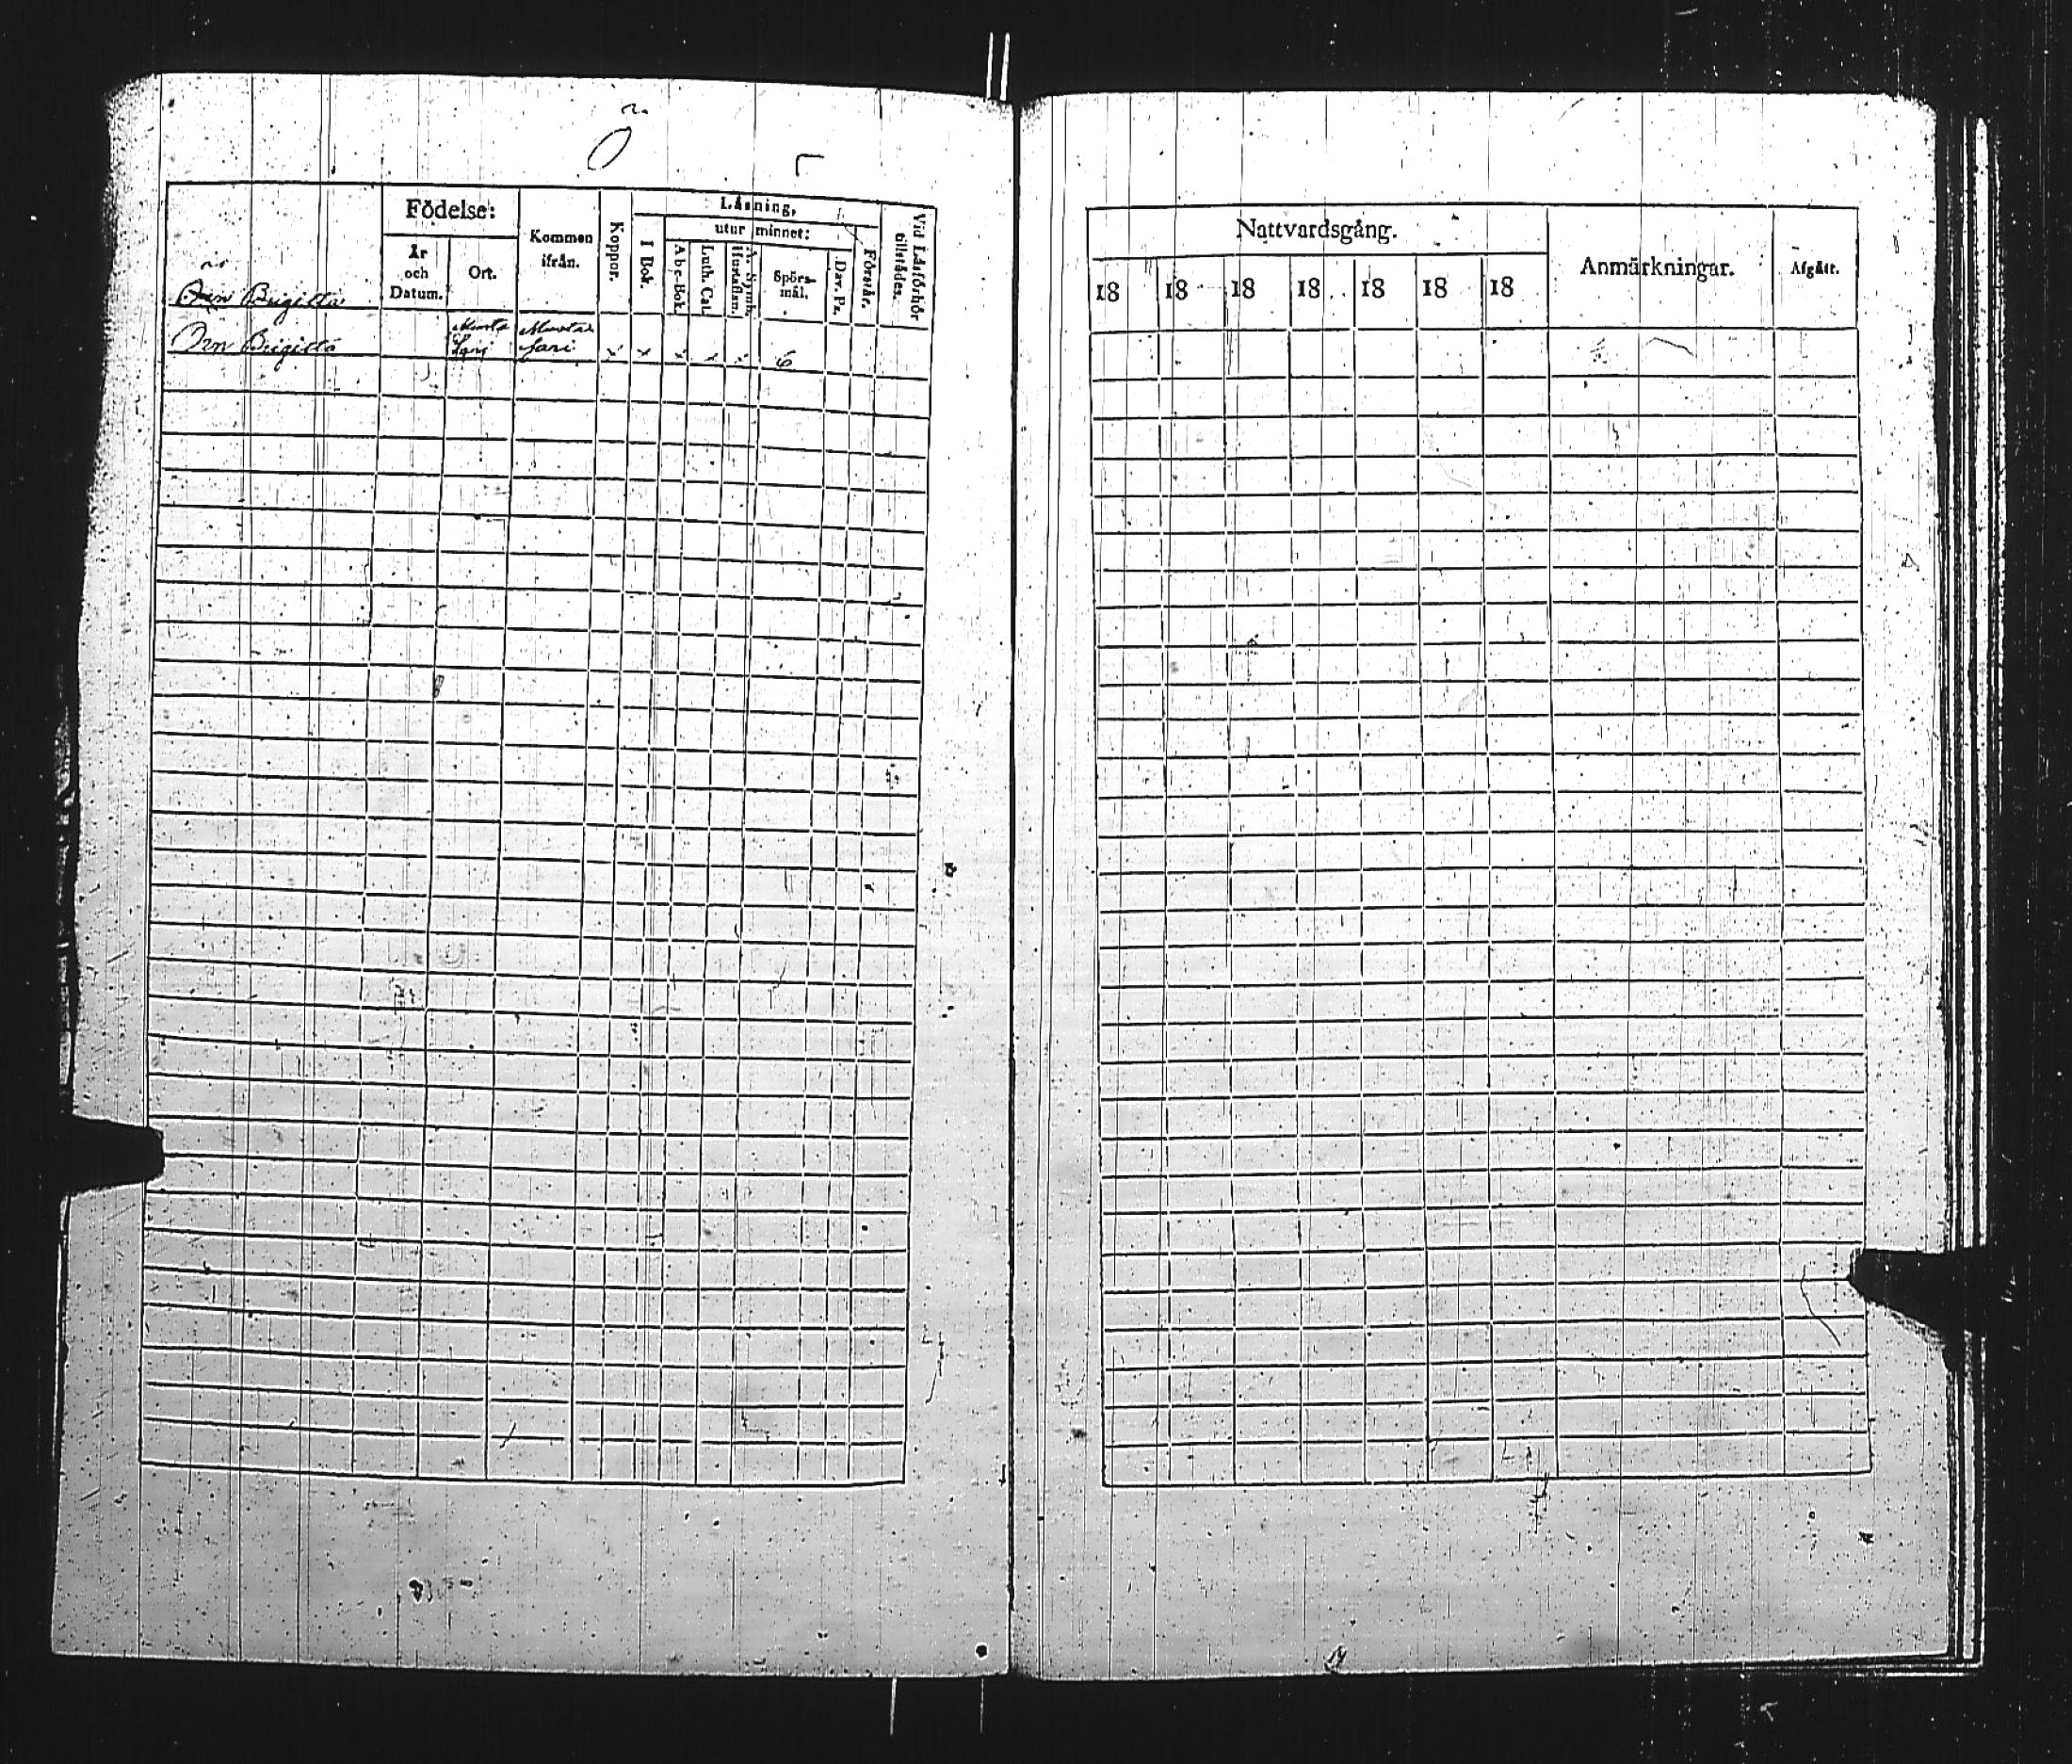 Ö
Födelse:
År och Datum.
Ort.
Kommen ifrån.
Koppor.
Läsning,
I Bok.
utur minnet:
Abc-Bok.
Luth. Cat.
A. Symb. Hustaflan.
Spörs-mål.
Dav. Ps.
Förstår.
Vid Läsförhör tillstädes.
Örn Brigitta
Örn Brigitta Musta Sari Musta Sari x x x x x 6
Nattvardsgång.
Anmärkningar.
Afgått.
18 18 18 18 18 18 18